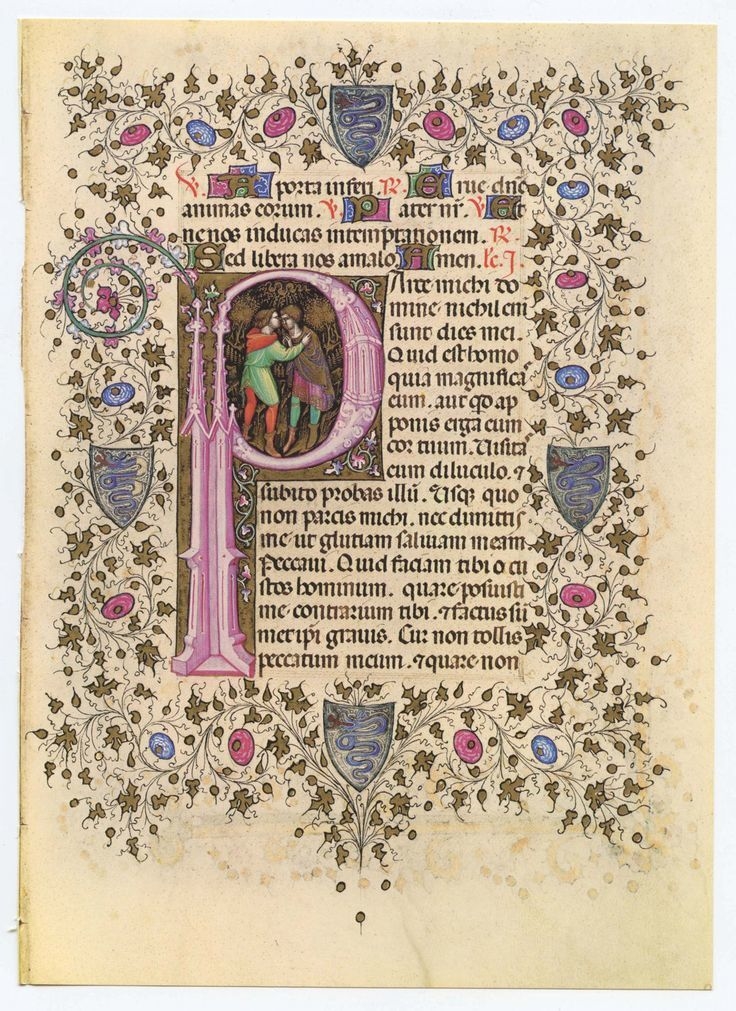 V. A porta inferi. R. E rue dñe
animas eorum. V. P ater nr̃. V. Et
ne nos inducas in temptationem. R.
Sed libera nos a malo. Amen. lc. I.
PArce michi do
mine nichil enĩ
sunt dies mei.
Quid est homo
quia magnificã
eum. aut qd ap
ponis erga eum
cor tuum. Visita
eum diluculo. ⁊
subito probas illũ. Usq; quo
non parcis michi. nec dimittis
me ut glutiam salivam meam
Peccavi. Quid faciam tibi o cu
stos hominum. quare posuisti
me contrarium tibi. ⁊ factus sũ
metip̃i gravis. Cur non tollis
peccatum meum. ⁊ quare non